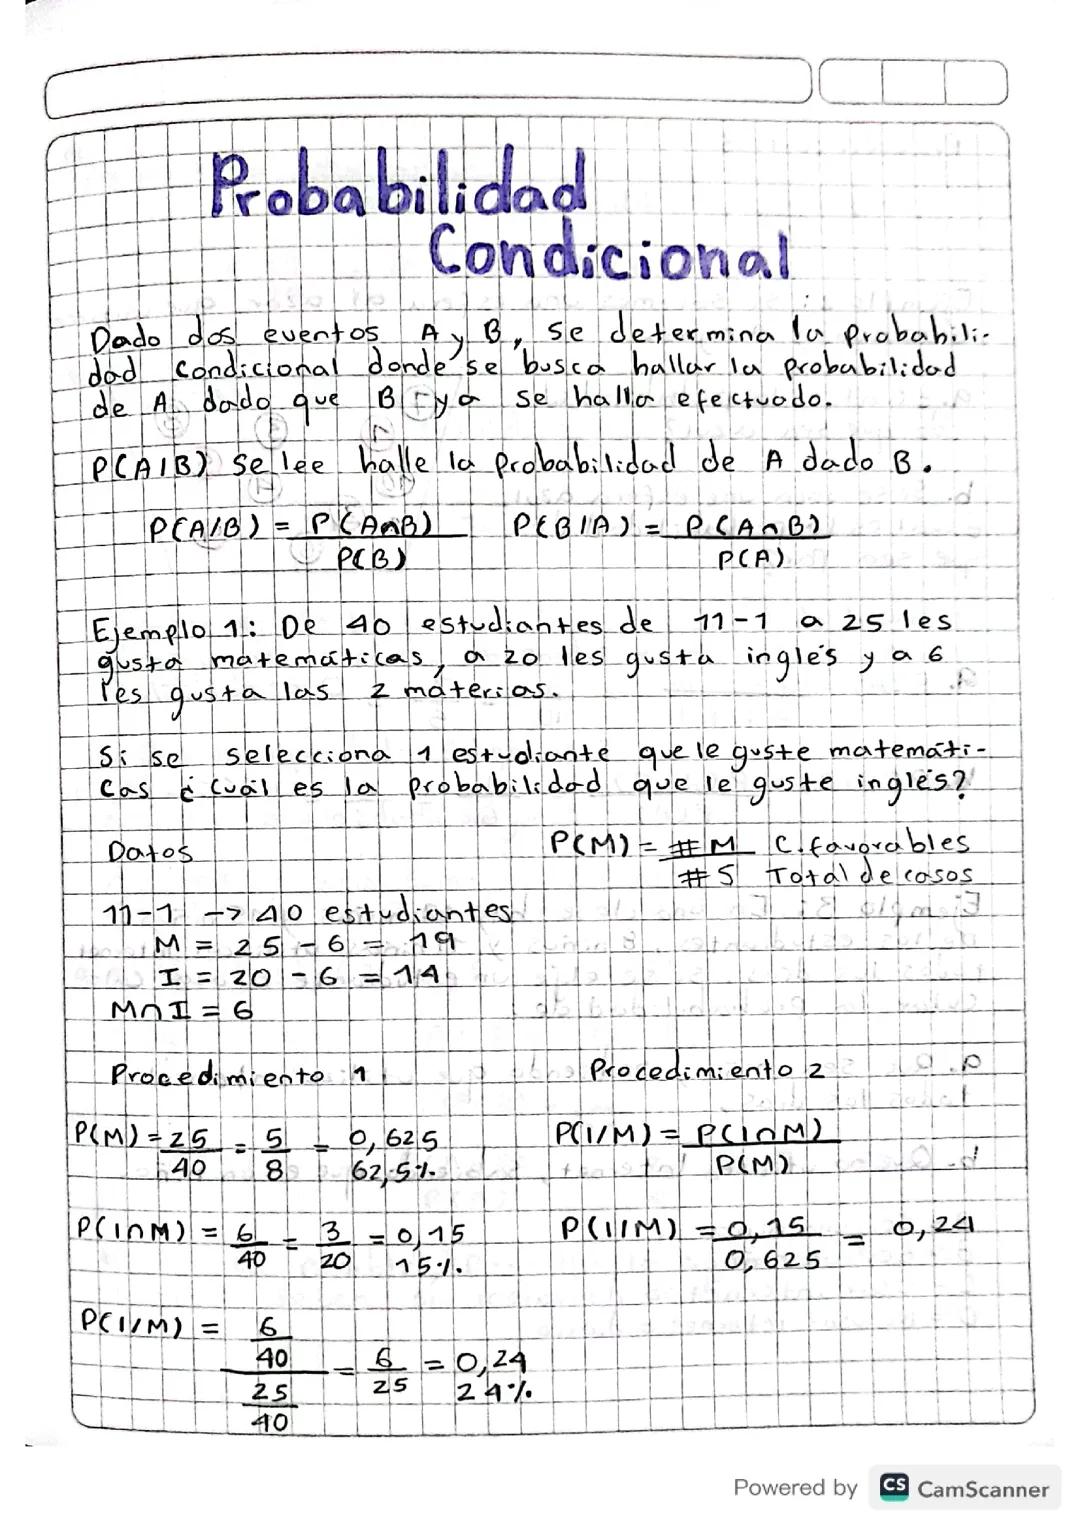 Probabilidad
Condicional
Dado dos eventos A y B, se determina la probabili-
dad condicional donde se busca hallar la probabilidad
de A dado que B ya se halla efectuado.
P(A|B) se lee halle la probabilidad de A dado B.
P(A/B) = P(A∩B) / P(B)    P(B/A) = P(A∩B) / P(A)
Ejemplo 1: De 40 estudiantes de 11-1 a 25 les
gusta matemáticas, a 20 les gusta inglés y a 6
les gusta las 2 materias.
Si se selecciona 1 estudiante que le guste matemáti-
cas ¿cuál es la probabilidad que le guste inglés?
Datos    P(M) = #M / #S    C. favorables / Total de casos
11-1 -> 40 estudiantes
M = 25 - 6 = 19
I = 20 - 6 = 14
M∩I = 6
Procedimiento 1    Procedimiento 2
P(M) = 25/40 = 5/8 = 0,625    P(I/M) = P(I∩M) / P(M)
62,5%
P(I∩M) = 6/40 = 3/20 = 0,15    P(I/M) = 0,15 / 0,625 = 0,24
15%.
P(I/M) = 6/40 / 25/40 = 6/25 = 0,24
24%.
Powered by CS CamScanner